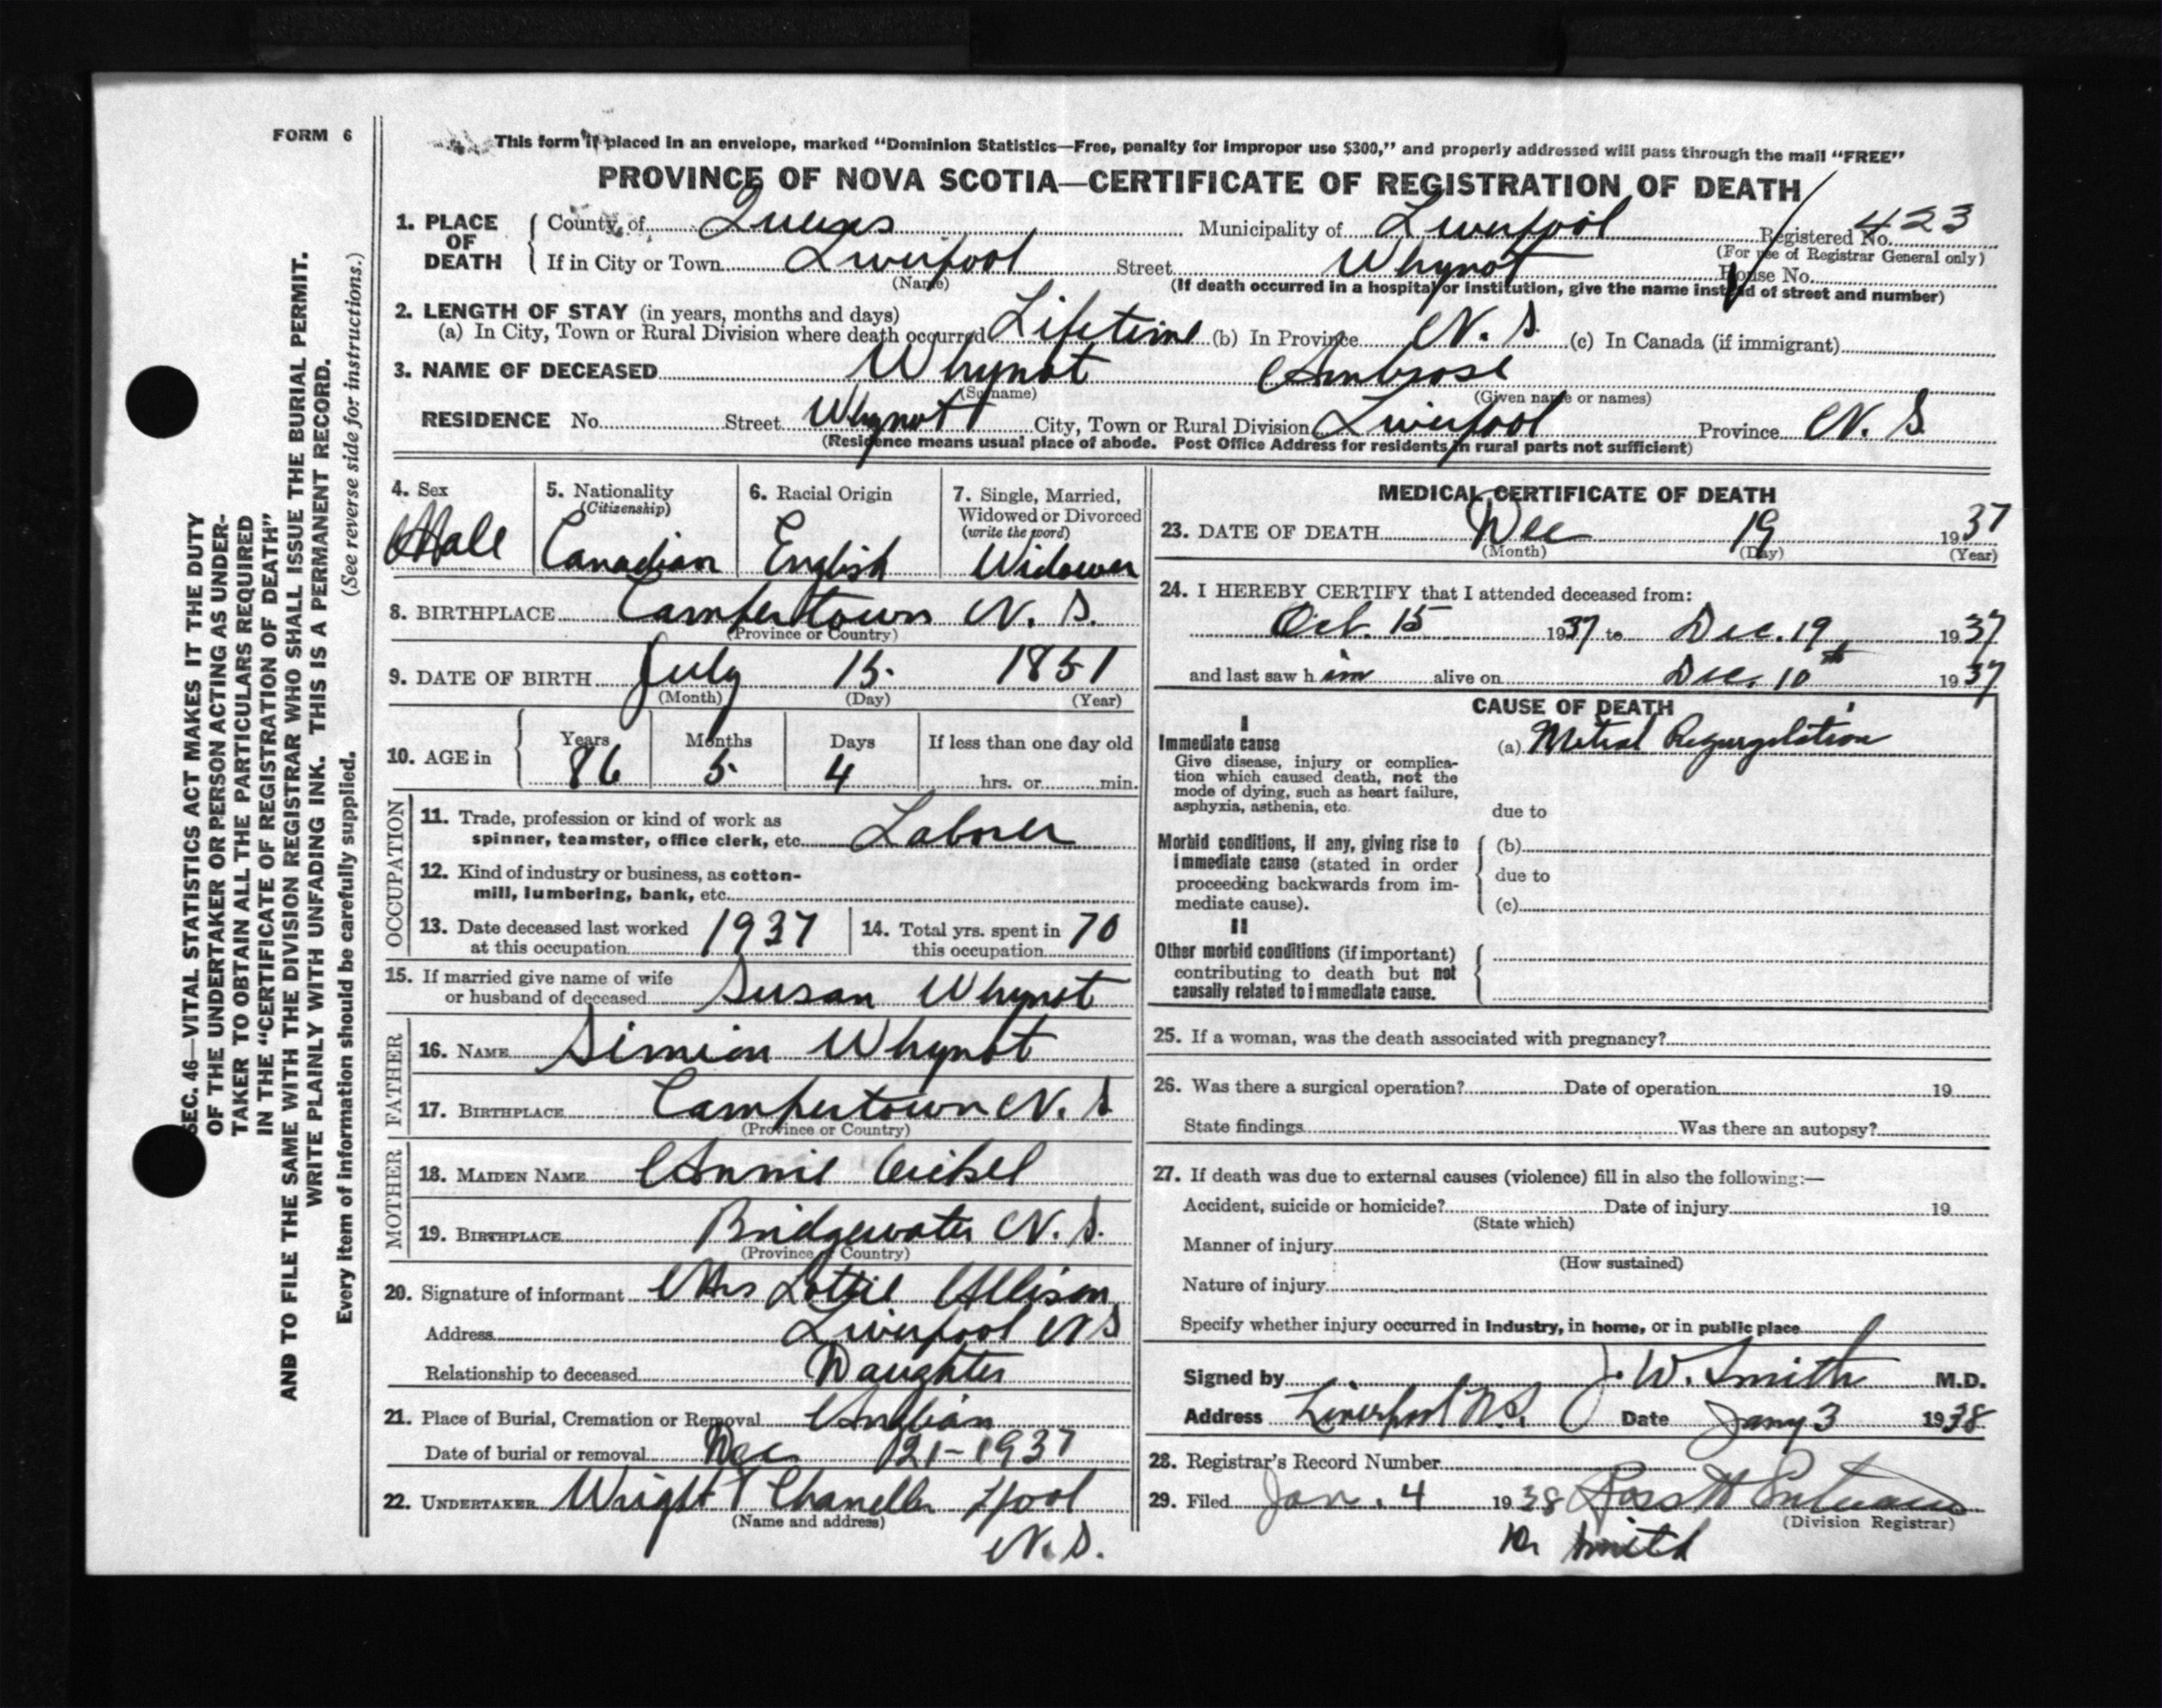 FORM 6
This form if placed in an envelope, marked "Dominion Statistics—Free, penalty for improper use $300," and properly addressed will pass through the mail "FREE"
PROVINCE OF NOVA SCOTIA—CERTIFICATE OF REGISTRATION OF DEATH
1. PLACE OF DEATH County of Queens Municipality of Liverpool Registered No. 423
(For use of Registrar General only)
If in City or Town Liverpool Street Whynot House No.
(Name) (If death occurred in a hospital or institution, give the name instead of street and number)
2. LENGTH OF STAY (in years, months and days)
(a) In City, Town or Rural Division where death occurred Lifetime (b) In Province N. S. (c) In Canada (if immigrant)
3. NAME OF DECEASED Whynot Ambrose
(Surname) (Given name or names)
RESIDENCE No. Street Whynot City, Town or Rural Division Liverpool Province N. S.
(Residence means usual place of abode. Post Office Address for residents in rural parts not sufficient)
4. Sex Male
5. Nationality (Citizenship) Canadian
6. Racial Origin English
7. Single, Married, Widowed or Divorced (write the word) Widower
8. BIRTHPLACE Campertown N. S.
(Province or Country)
9. DATE OF BIRTH July 15. 1851
(Month) (Day) (Year)
10. AGE in Years Months Days If less than one day old
86 5 4 hrs. or min.
OCCUPATION
11. Trade, profession or kind of work as
spinner, teamster, office clerk, etc. Laborer
12. Kind of industry or business, as cotton-
mill, lumbering, bank, etc.
13. Date deceased last worked at this occupation 1937
14. Total yrs. spent in this occupation 70
15. If married give name of wife
or husband of deceased Susan Whynot
FATHER
16. NAME Simion Whynot
17. BIRTHPLACE Campertown N. S
(Province or Country)
MOTHER
18. MAIDEN NAME Annie
19. BIRTHPLACE Bridgewater N. S.
(Province or Country)
20. Signature of informant Mrs Lottie Allison
Address Liverpool N S
Relationship to deceased Daughter
21. Place of Burial, Cremation or Removal
Date of burial or removal Dec 21-1937
22. UNDERTAKER Wright Chandler L'pool
(Name and address)
N. S.
MEDICAL CERTIFICATE OF DEATH
23. DATE OF DEATH Dec 19 1937
(Month) (Day) (Year)
24. I HEREBY CERTIFY that I attended deceased from:
Oct. 15 1937 to Dec. 19 1937
and last saw him alive on Dec. 10th 1937
CAUSE OF DEATH
I
Immediate cause (a) Mitral Regurgitation
Give disease, injury or complica-
tion which caused death, not the
mode of dying, such as heart failure,
asphyxia, asthenia, etc. due to
Morbid conditions, if any, giving rise to (b)
immediate cause (stated in order
proceeding backwards from im- due to
mediate cause). (c)
II
Other morbid conditions (if important)
contributing to death but not
causally related to immediate cause.
25. If a woman, was the death associated with pregnancy?
26. Was there a surgical operation? Date of operation 19
State findings Was there an autopsy?
27. If death was due to external causes (violence) fill in also the following:—
Accident, suicide or homicide? Date of injury 19
(State which)
Manner of injury
(How sustained)
Nature of injury
Specify whether injury occurred in industry, in home, or in public place
Signed by J. W. Smith M.D.
Address Liverpool N.S. Date Jany 3 1938
28. Registrar's Record Number
29. Filed Jan. 4 1938 Ross H
(Division Registrar)
Dr Smith
SEC. 46—VITAL STATISTICS ACT MAKES IT THE DUTY
OF THE UNDERTAKER OR PERSON ACTING AS UNDER-
TAKER TO OBTAIN ALL THE PARTICULARS REQUIRED
IN THE "CERTIFICATE OF REGISTRATION OF DEATH"
AND TO FILE THE SAME WITH THE DIVISION REGISTRAR WHO SHALL ISSUE THE BURIAL PERMIT.
WRITE PLAINLY WITH UNFADING INK. THIS IS A PERMANENT RECORD.
Every item of information should be carefully supplied. (See reverse side for instructions.)